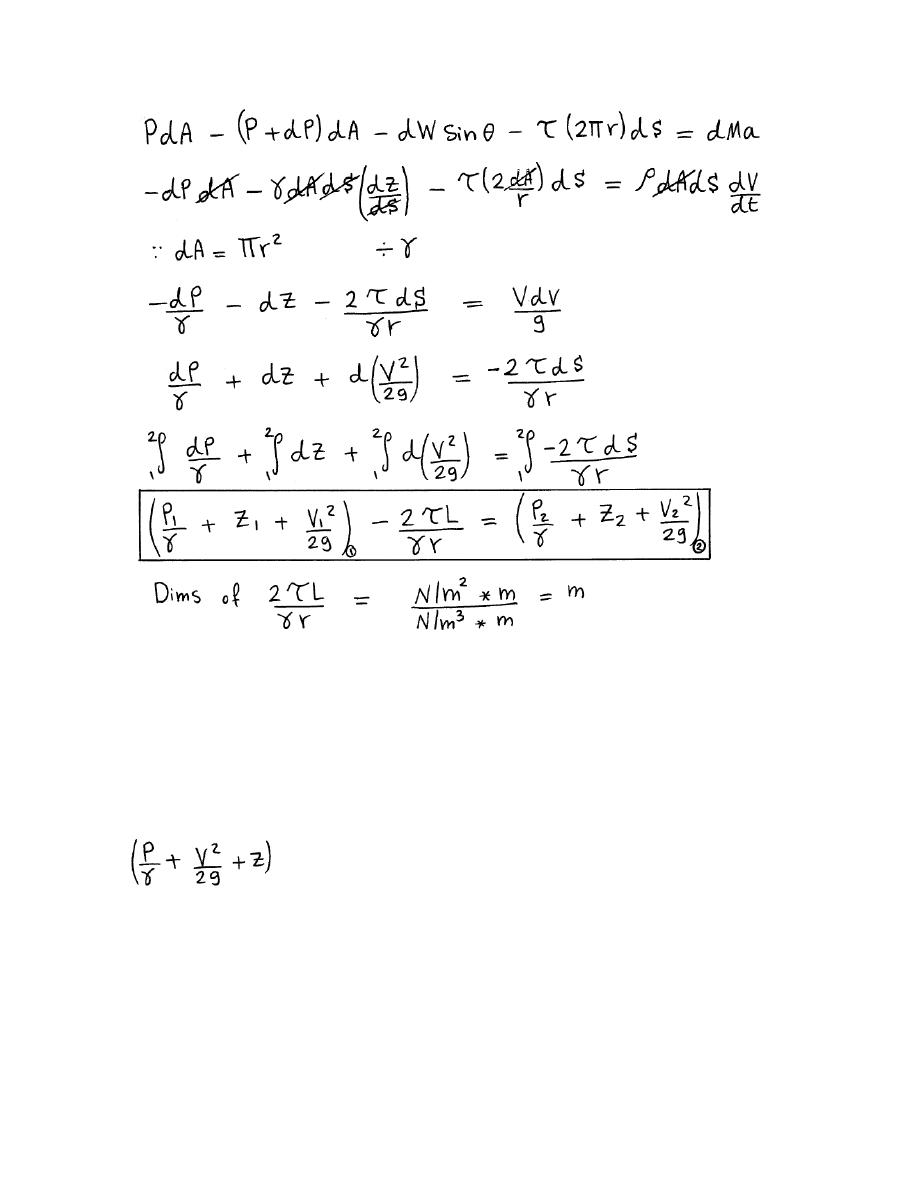 PdA - (P + dP) dA - dW Sin θ - τ (2πr) ds = dMa
-dP dA - γ dA ds (dz/ds) - τ (2 dA/r) ds = ρ dA ds dV/dt
∵ dA = πr² ÷ γ
-dP/γ - dz - 2 τ ds/γr = V dv/g
dP/γ + dz + d(V²/2g) = -2 τ ds/γr
₁²∫ dP/γ + ₁²∫ dz + ₁²∫ d(V²/2g) = ₁²∫ -2 τ ds/γr
(P₁/γ + Z₁ + V₁²/2g)① - 2 τ L/γr = (P₂/γ + Z₂ + V₂²/2g)②
Dims of 2 τ L/γr = N/m² * m/N/m³ * m = m
(P/γ + V²/2g + z)